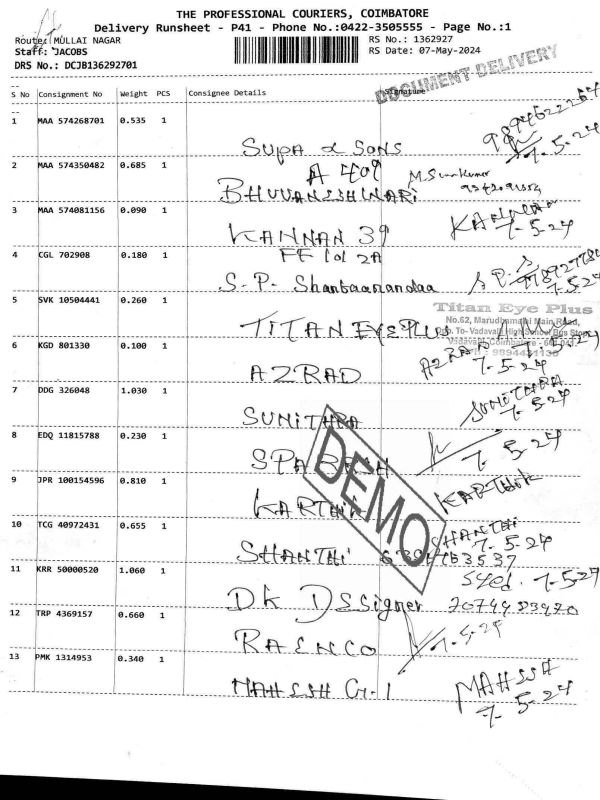 THE PROFESSIONAL COURIERS, COIMBATORE
Delivery Runsheet - P41 - Phone No.:0422-3505555 - Page No.:1
Route: MULLAI NAGAR RS No.: 1362927
Staff: JACOBS RS Date: 07-May-2024
DRS No.: DCJB136292701
DOCUMENT DELIVERY
S No Consignment No Weight PCS Consignee Details Signature
1 MAA 574268701 0.535 1
SUPA & SONS 7.5.24
2 MAA 574350482 0.685 1
A 409
BHUVANESHWARi
3 MAA 574081156 0.090 1 KANNAN
KANNAN 39 7-5-24
4 CGL 702908 0.180 1
FF 101 2A
S.P. Shanbaanandaa S.P.S
7.5.24
5 SVK 10504441 0.260 1
Titan Eye Plus
TITAN EYE PLUS
6 KGD 801330 0.100 1 AZRAD
AZRAD 7.5.24
7 DDG 326048 1.030 1 SUNITHRA
SUNITHRA 7.5.24
8 EDQ 11815788 0.230 1
7.5.24
DEMO
9 JPR 100154596 0.810 1
KARTHIK KARTHIK
10 TCG 40972431 0.655 1 SHANTHI
7.5.24
SHANTHI
11 KRR 50000520 1.060 1 Syed. 7.5.24
DK DSSigner
12 TRP 4369157 0.660 1 7.5.24
RAENCO
13 PMK 1314953 0.340 1
MAHESH G-1 MAHSSH
7-5-24